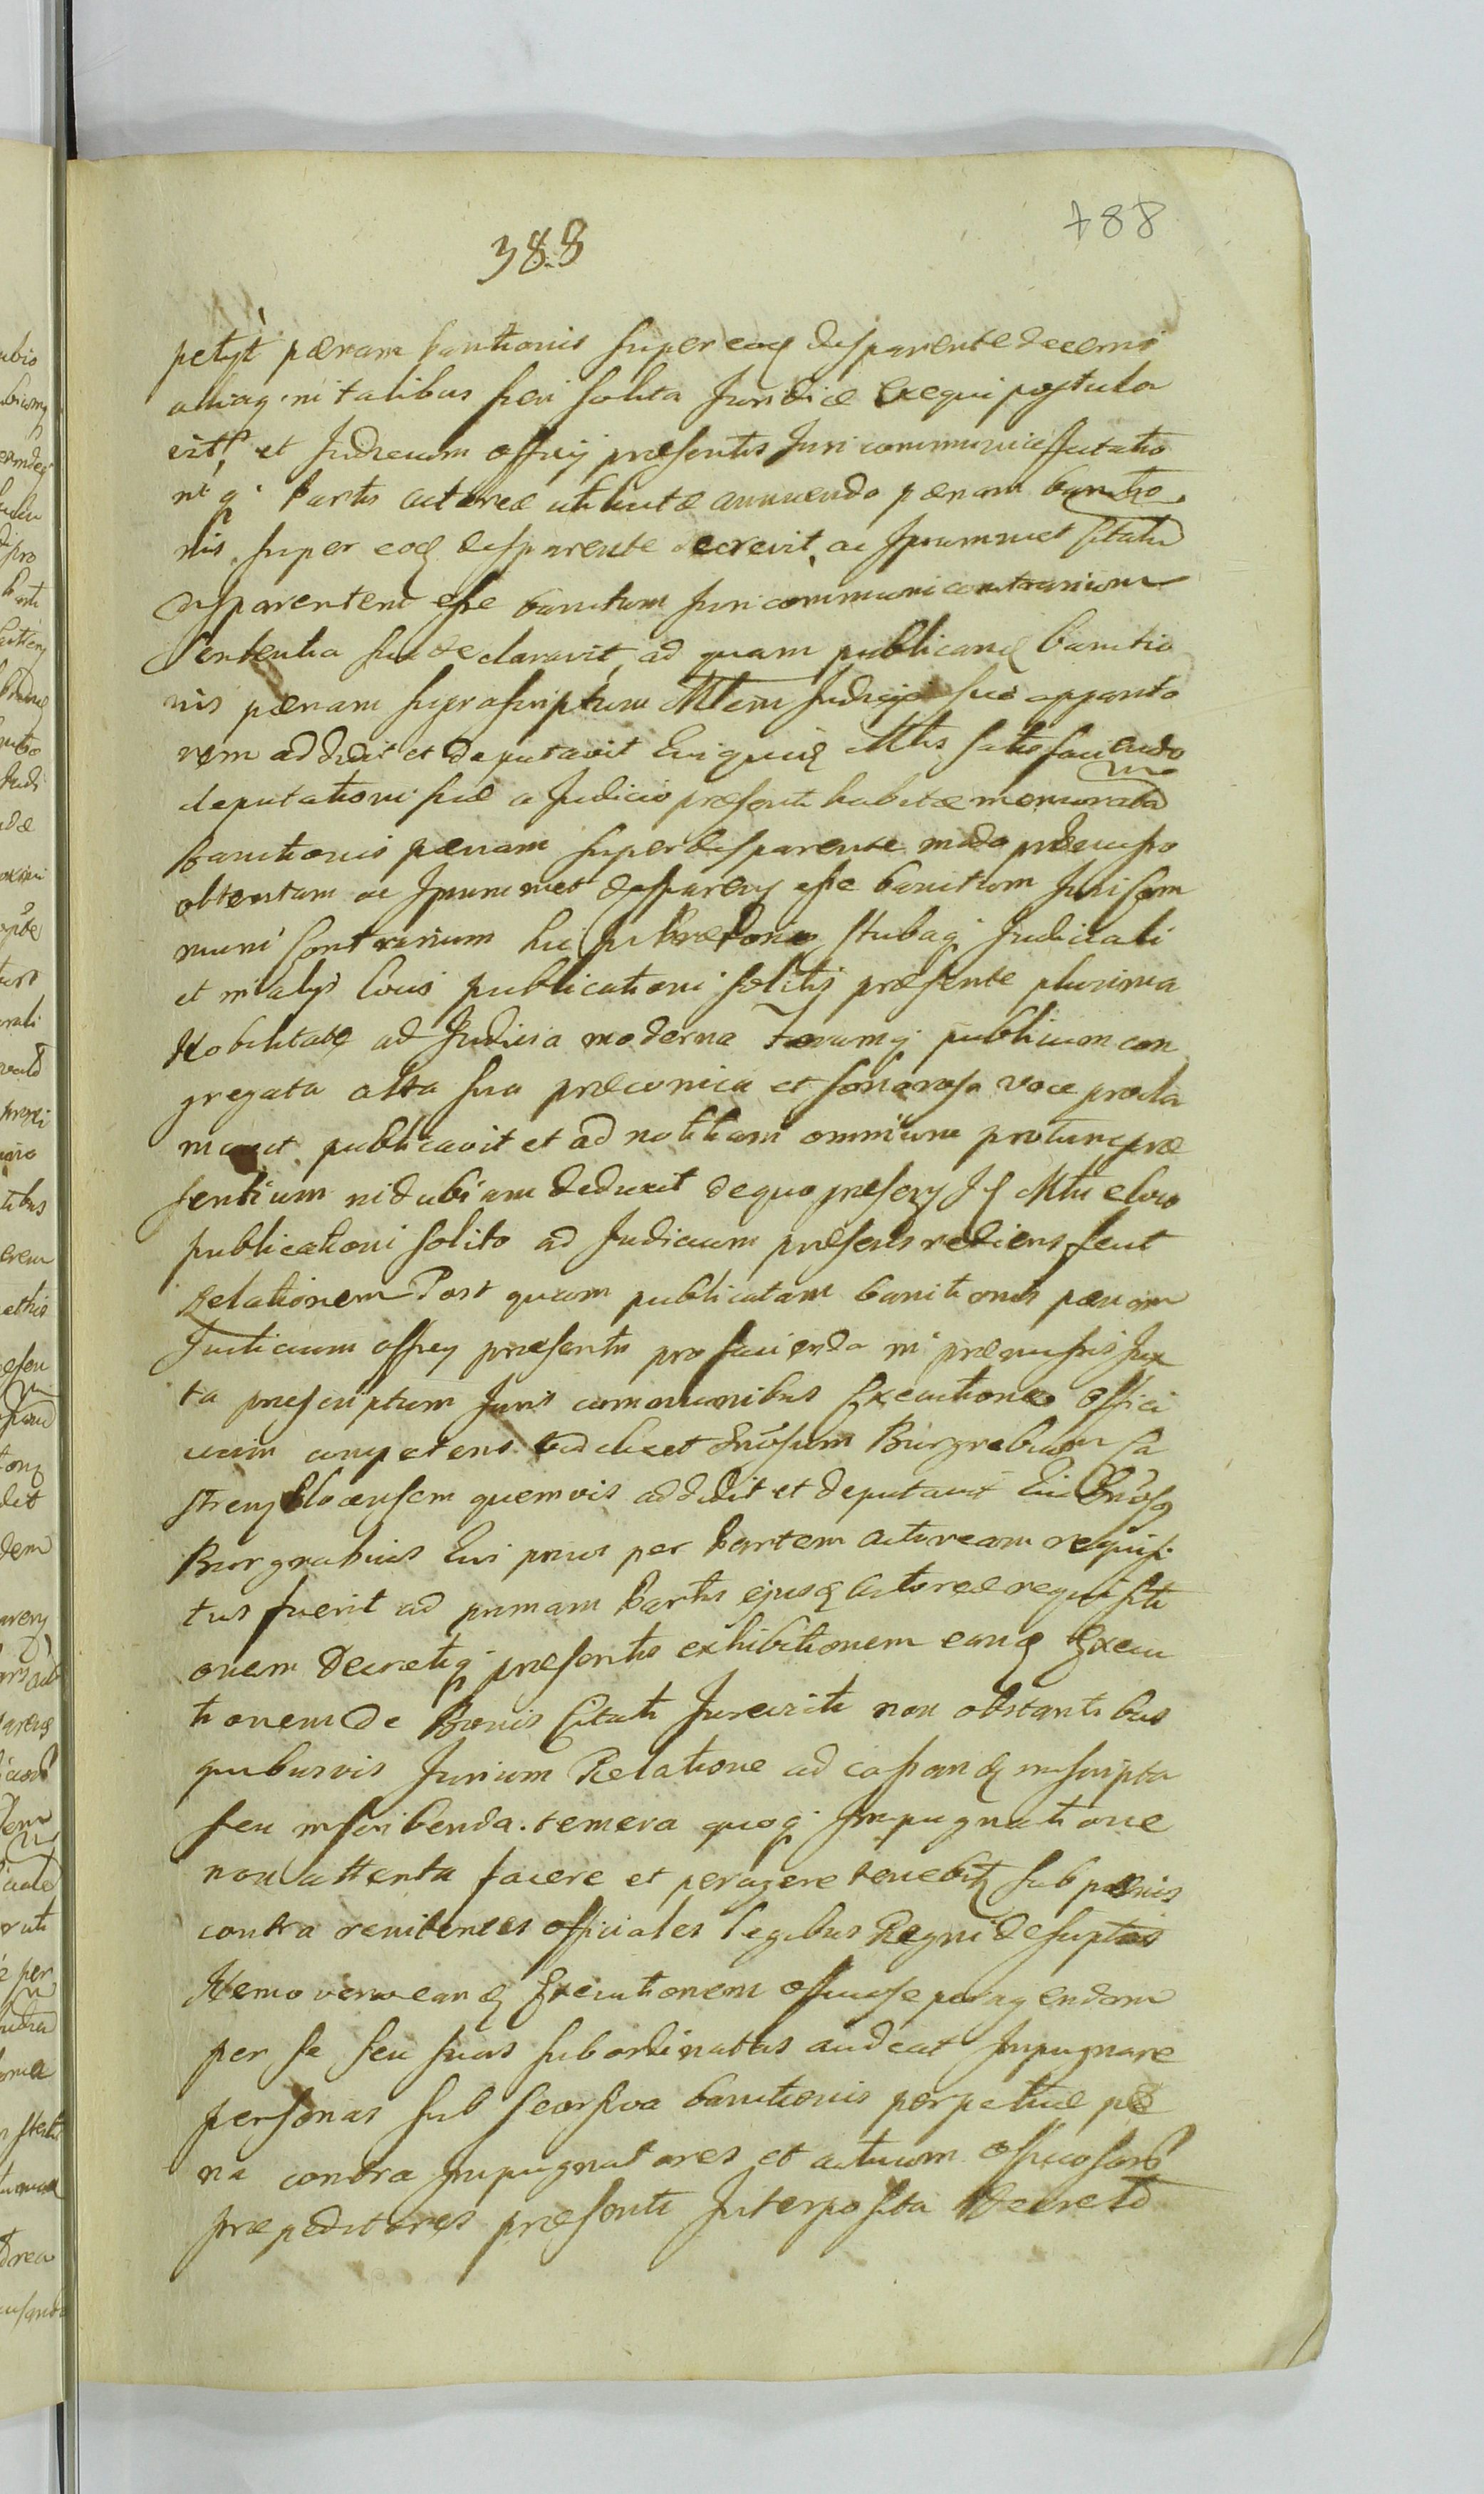 388
788
petyt pœnam banitionis super eoq disparente decerni
aliaq in talibus fieri solita Juridice Exequi postula
vit, et Judicium officij præsentis Juri communi Citatio
niq Partis actoreæ annuendo pœnam banitio
nis super eoq disparente decrevit, ac Ipsummet Citatu
disparentem esse banitum Juri communi contrarium
Sententia sua declaravit, ad quam publicanq banitio
nis pœnam suprascriptum Mtem Judicij sui apparito
rem addidit et deputavit Qui quidq Mtis satisfaciendo
deputationi suæ a Judicio præsenti habitæ memorata
banitionis pœnam super disparente modo præmisso
obtentam ac Ipsummet disparen esse banitum Juri Com
muni Contrarium hic in Prætorio stubaq Judiciali
et in alijs locis publicationi solitis præsente plurima
Nobilitate ad Judicia moderna forumq publicum con
gregata alta sua præconica et sonorosa voce procla
mavit publicavit et ad notitiam omnium protunc præ
sentium indubiam deduxit de quo præsens Id Mtu eloco
publicationi solito ad Judicium præsens rediens fecit
Relationem Post quam publicatam banitionis pœnam
Judicium officij præsentis pro facienda in præmissis Jux
ta præscriptum Juris communibus Executione Offici
um competens videlicet Burgrabium Ca
strens quemvis addidit et deputavit Qui
Burgrabius Cui prius per Partem actoream requisi
tus fuerit ad primam Partis ejusq Actoreæ requisiti
onem Decretiq præsentis exhibitionem eanq Execu
tionem de Bonis Citati Jurevicti non obstantibus
quibusvis Jurium Relatione ad cassanq inscripta
seu inscribenda. temera quoq Impugnatione
non attenta facere et peragere tenebit sub pœnis
contra renitentes officiales legibus Regni descriptis
Nemo vero eanq Executionem officiose peragendam
per se seu suas subordinatas audeat Impugnare
personas sub seorsiva banitionis perpetuæ pœ
na contra Impugnatores et actuum officiosor
præpeditores præsenti Interposita Decreto